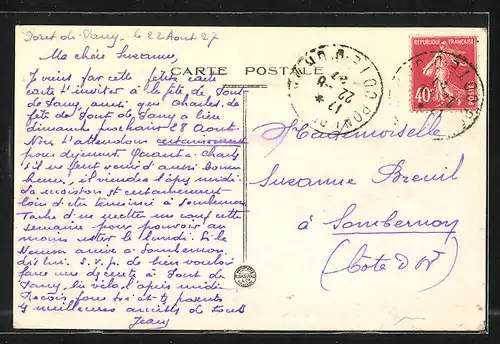 Pont de Pany, le 22 Aout 27
Ma chère Suzanne,
Je viens par cette petite carte
CARTE POSTALE
t'inviter à la fête de Pont
de Pany, ainsi que Charles. La
fête de Pont de Pany a lieu
dimanche prochain 28 Aout.
Nous t'attendons certainement
pour déjeuner. Quant à Charles
s'il ne peut venir d'aussi bonne
heure, il viendra l'après midi.
La moisson est certainement
loin d'être terminée à Sombernon
Tache d'en mettre un coup cette
semaine pour pouvoir au
moins rester le lundi. Si le
arrive à Sombernon
dis lui. S.v.p. de bien vouloir
faire une descente à Pont de
Pany, en vélo, l'après midi
Reçois, pour toi et tes parents
les meilleures amitiés de tous
Jean
REPUBLIQUE FRANÇAISE
POSTES
40c
22 -8
27
Mademoiselle
Suzanne Breuil
à Sombernon
(Côte d'Or)